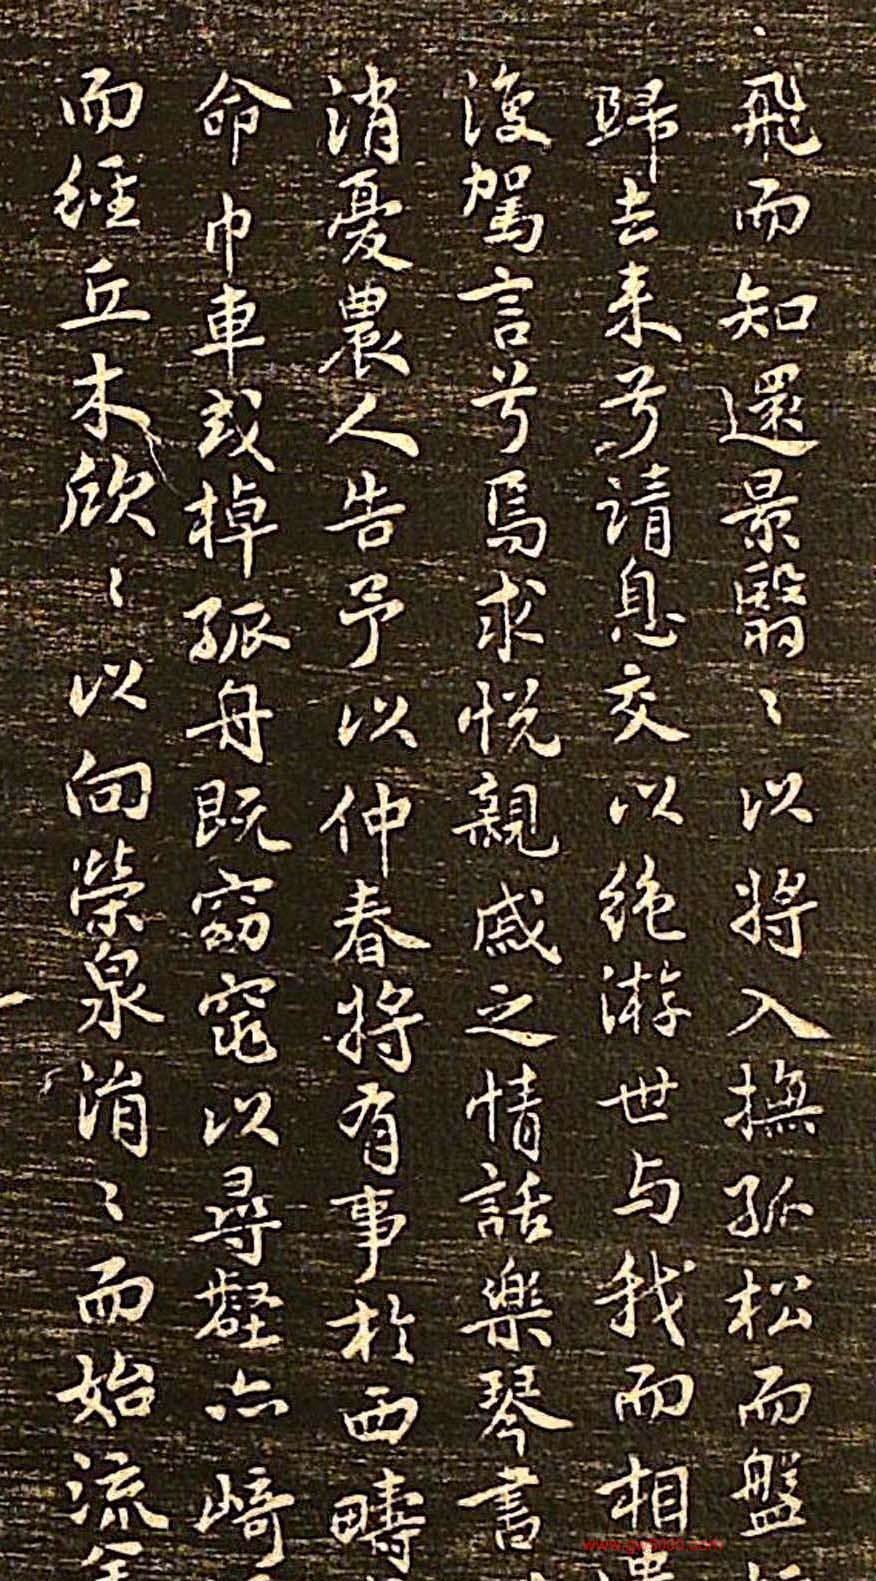 飛而知還景翳〻以將入撫孤松而盤
歸去来兮請息交以絶游世与我而相
復駕言兮焉求悦親戚之情話樂琴書
消憂農人告予以仲春將有事於西疇
命巾車或棹孤舟既窈窕以尋壑亦崎
而經丘木欣〻以向榮泉涓〻而始流